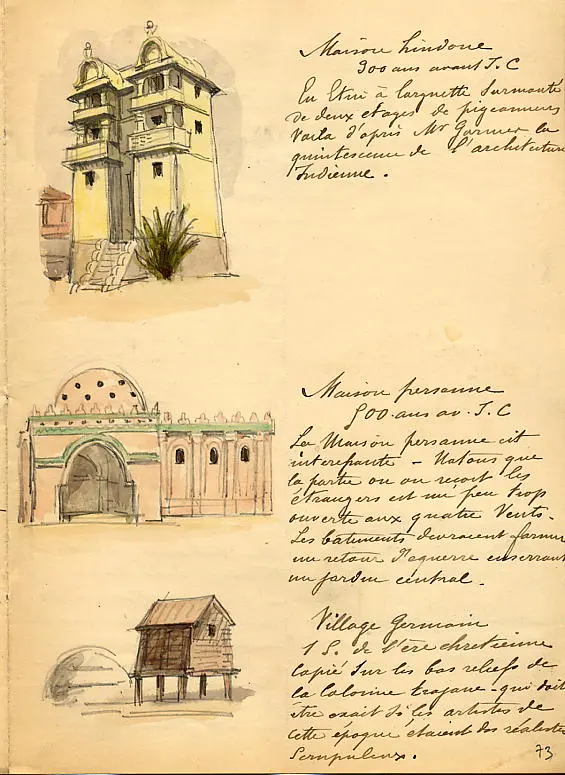 Maison hindoue
300 ans avant J. C
En Etui à lorgnette surmonté
de deux etages de pigeonniers
Voila d'après Mr Garnier la
quintescence de l'architecture
Indienne.
Maison persanne
500 ans av. J. C
La Maison persanne est
interessante - Notons que
la partie ou on reçoit les
étrangers est un peu trop
ouverte aux quatre Vents.
Les batiments devraient former
un retour d'equerre enserrant
un jardin central.
Village Germain
1 S. de l'ère chretienne
Copié sur les bas reliefs de
la Colonne trajane - qui doit
être exact si les artistes de
cette époque etaient des réalistes
Scrupuleux.
73